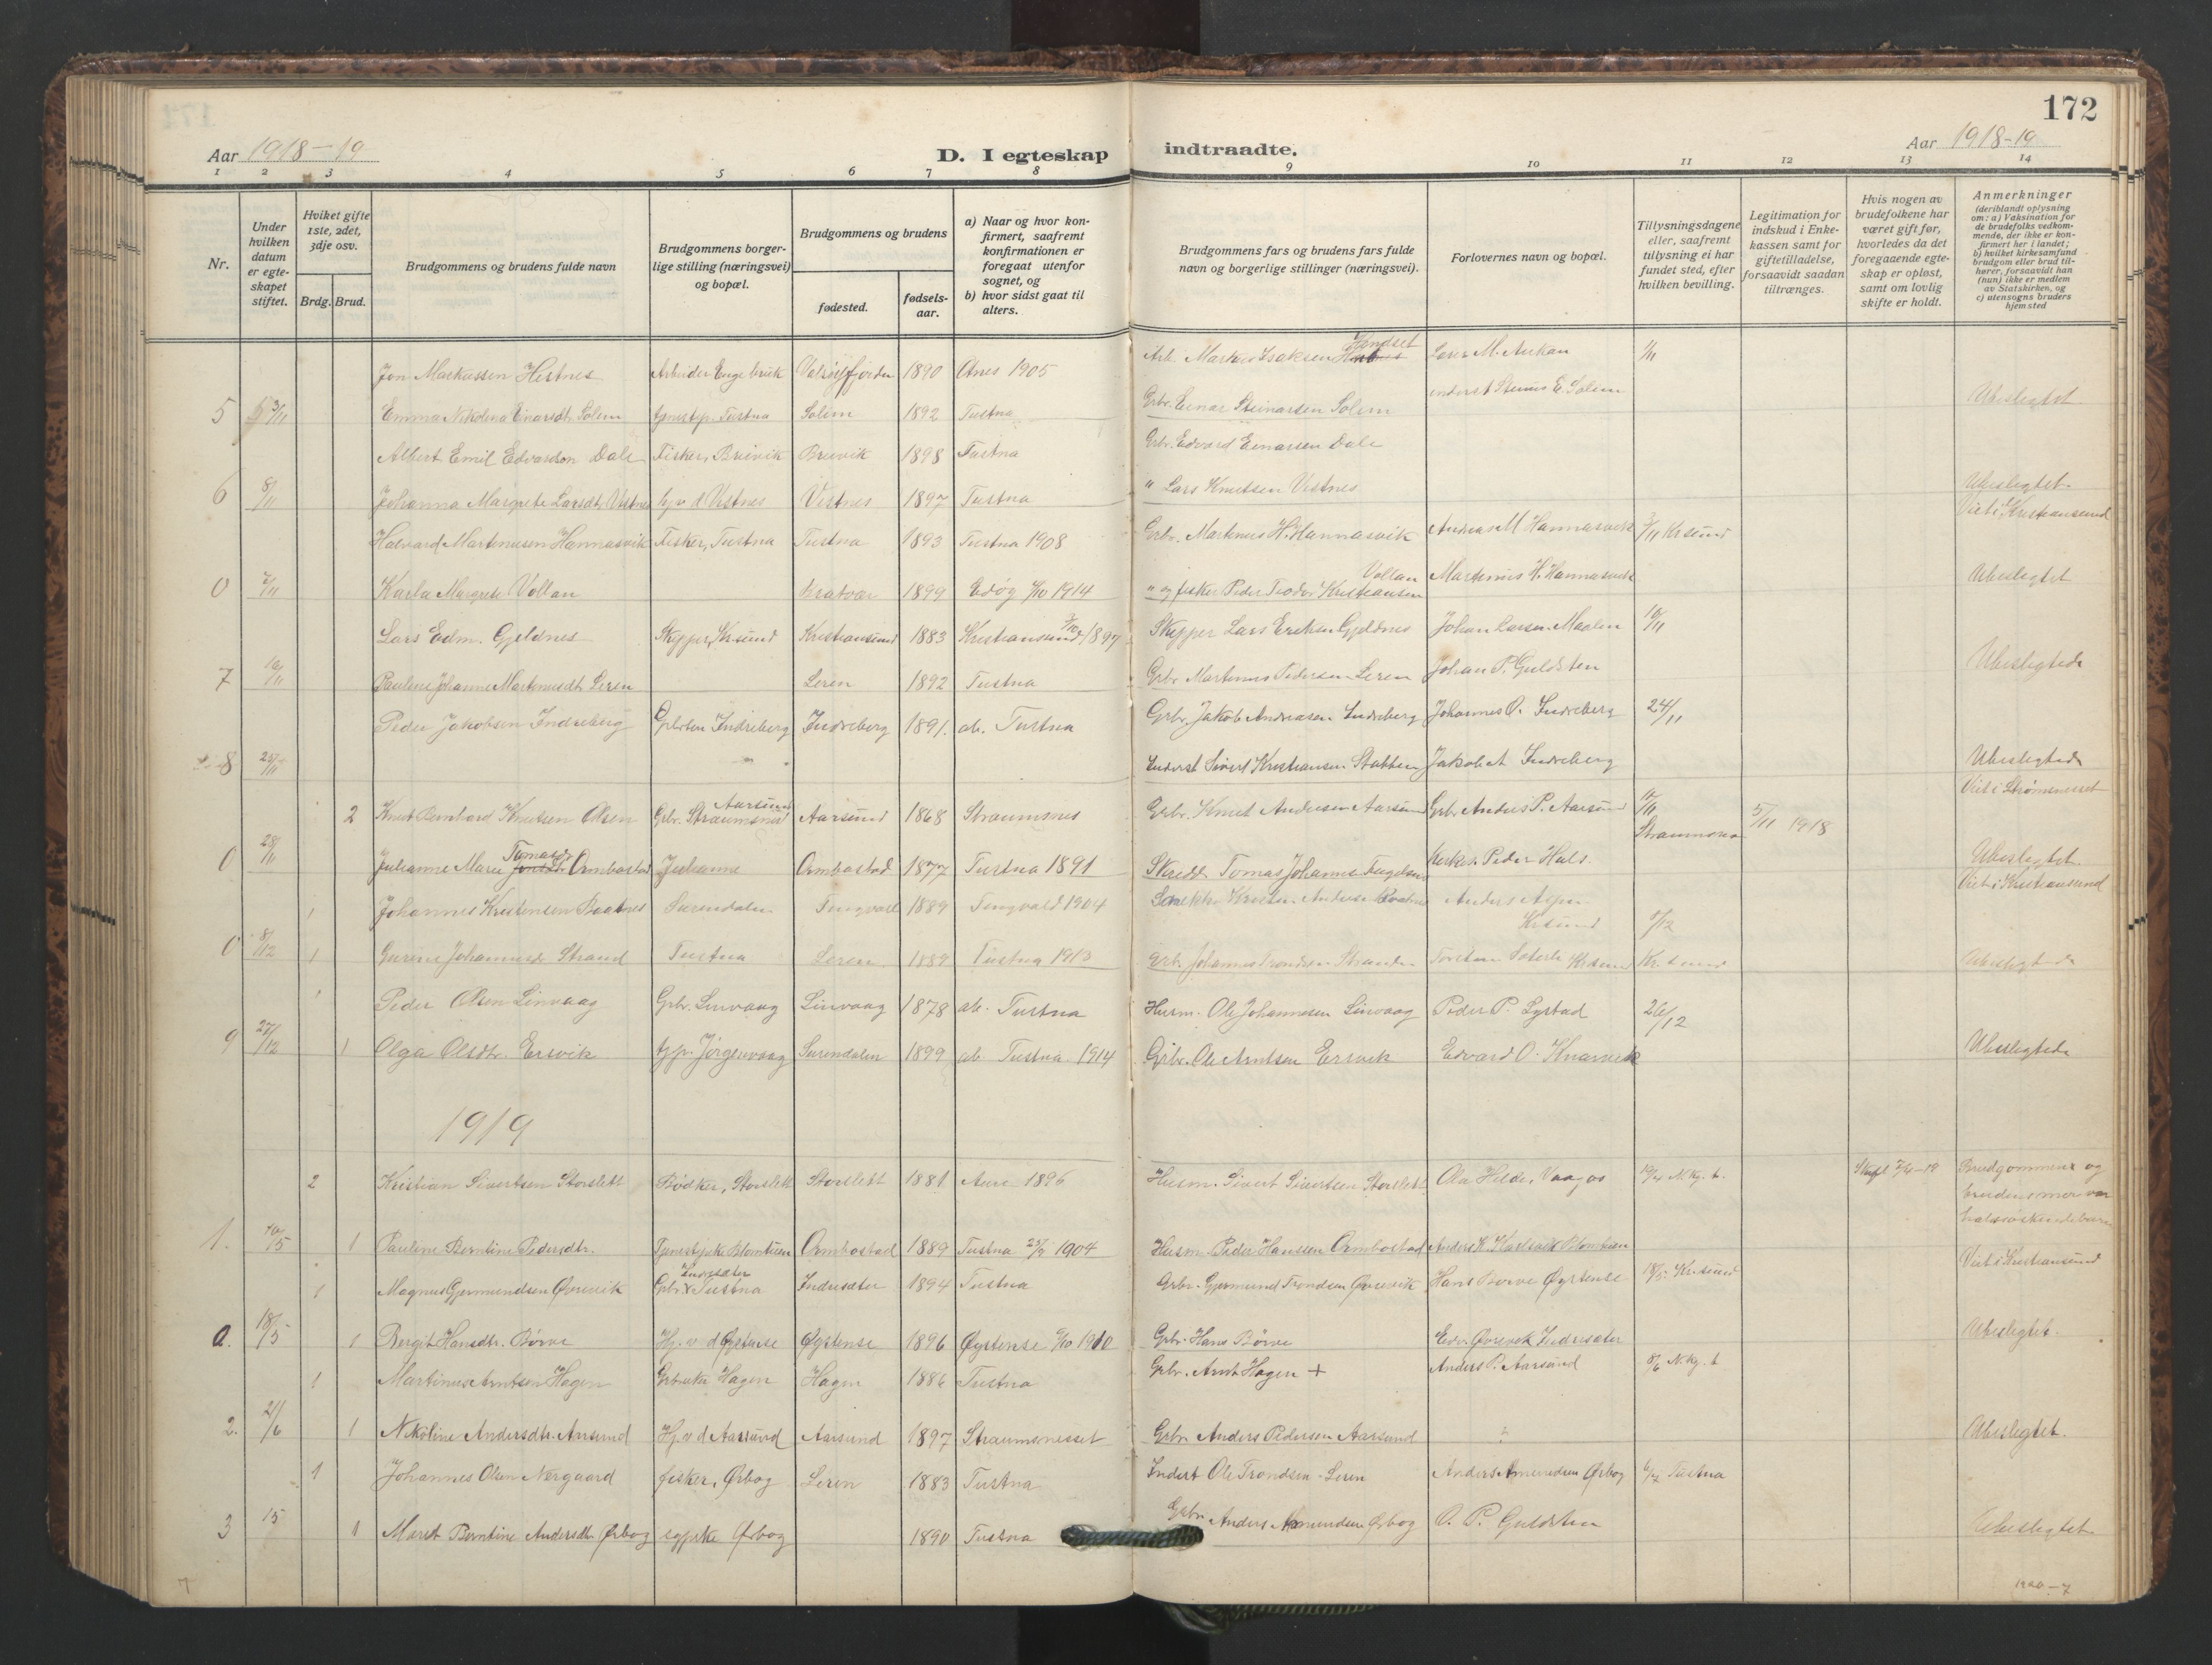 172
Aar 1918-19
D. I egteskap indtraadte.
Aar 1918-19
1 2 3 4 5 6 7 8 9 10 11 12 13 14
Nr.
Under hvilken datum er egteskapet stiftet.
Hvilket gifte 1ste, 2det, 3dje osv.
Brdg. Brud.
Brudgommens og brudens fulde navn
Brudgommens borgerlige stilling (næringsvei) og bopæl.
Brudgommens og brudens
fødested.
fødselsaar.
a) Naar og hvor konfirmert, saafremt konfirmationen er foregaat utenfor sognet, og
b) hvor sidst gaat til alters.
Brudgommens fars og brudens fars fulde navn og borgerlige stillinger (næringsvei).
Forlovernes navn og bopæl.
Tillysningsdagene eller, saafremt tillysning ei har fundet sted, efter hvilken bevilling.
Legitimation for indskud i Enkekassen samt for giftetilladelse, forsaavidt saadan tiltrænges.
Hvis nogen av brudefolkene har været gift før, hvorledes da det foregaaende egteskap er opløst, samt om lovlig skifte er holdt.
Anmerkninger (deriblandt oplysning om: a) Vaksination for de brudefolks vedkommende, der ikke er konfirmert her i landet; b) hvilket kirkesamfund brudgom eller brud tilhører, forsaavidt han (hun) ikke er medlem av Statskirken, og c) utensogns bruders hjemsted
Jon Markussen Hestnes Arbeider 1890 1905 Arb. Markus Isaksen Lars M. Aukan 1/11
5 3/11 Emma Nikolina Einarsdt. Solem Tustna Solem 1892 Tustna Grbr. Einar Steinarsen Solem inderst E. Solem Ubeslegtet
Albert Emil Edvardsen Dale Fisker, Breivik Breivik 1898 Tustna Grbr. Edvard Einarsen Dale
6 8/11 Johanna Margrete Larsdt. Vistnes hj. v d Vistnes Vistnes 1897 Tustna " Lars Knutsen Vistnes Ubeslegtet.
Halvard Martinusen Hannasvik Fisker, Tustna Tustna 1893 Tustna 1908 Grbr. Martinus H. Hannasvik Andreas M Hannasvik 3/11 Krsund Viet i Kristiansund
0 7/11 Karla Margrete Vollan Bratvær 1899 Edøy 1914 " og fisker Peder Teodor Kristiansen Vollan Martinus H. Hannasvik Ubeslegtet
Lars Edm. Gjeldnes Skipper, Krsund Kristiansund 1883 Kristiansund 1897 Skipper Lars Eriksen Gjeldnes Johan Larsen Maalen 10/11
7 10/11 Pauline Johanne Martinusdt. Leren Leren 1892 Tustna Grbr Martinus Pedersen Leren Johan P. Guldsten Ubeslegtede
Peder Jakobsen Indreberg Grbrsen Indreberg Indreberg 1891. ab. Tustna Grbr. Jakob Andreasen Indreberg Johannes O. Indreberg 24/11
8 25/11 Inderst Sivert Kristiansen Stabben Jakob A Indreberg Ubeslegtede
2 Knut Bernhard Knutsen Olsen Grbr. Straumsnes Aarsund Aarsund 1868 Straumsnes Grbr. Knut Andersen Aarsund Grbr Anders P. Aarsund Straumsnes 5/11 1918 Viet i Strømsnesset
0 28/11 Julianne Marie Tomasdt. Ormbostad Ormbostad 1877 Tustna 1891 Tomas Johannes Kirkes. Peder Hals. Ubeslegtet.
1 Johannes Kristensen Baatnes Surendalen Tingvoll 1889 Tingvold 1904 Anders Krsund 8/12 Viet i Kristiansund
0 8/12 1 Gurine Johannesdt Strand Tustna Leren 1889 Tustna 1913 Grbr. Johannes Trondsen Strande Krsund Kr.sund Ubeslegtede
1 Peder Olsen Linvaag Grbr. Linvaag Linvaag 1878 ab. Tustna Husm. Ole Johannesen Linvaag Peder P. Lystad 26/12
9 27/12 1 Olga Olsdtr. Ersvik tjp. Jørgenvaag Surendalen 1899 ab. Tustna 1914 Grbr. Ole Arntsen Ersvik Edvard O. Knarvik Ubeslegtede
1919
2 Kristian Sivertsen Storslett Bødker, Storslett Storslett 1881 Aure 1896 Husm. Sivert Sivertsen Storslett Ola Helde, Vaagos Brudgommens og brudens mor var halvsøskendebarn
1. 1 Pauline Berntine Pedersdtr. Ormbostad 1889 Tustna 1904 Husm. Peder Hanssen Ormbostad
1 Magnus Gjermundsen Øvrevik Grbr. Indresæter Tustna Indresæter 1894 Tustna Grbr. Gjermund Trondsen Øvrevik Hans Børve Øystense 18/5 Kr.sund Viet i Kristiansund
0. 18/5 1 Bergit Hansdtr. Børve Hj. v d Øystense Øystense 1896 Øystense 1910 Grbr. Hans Børve Edv. Øvrevik Indresæter Ubeslegtet.
1 Martinus Arntsen Hagen Grbruker Hagen Hagen 1886 Tustna Grbr. Arnt Hagen + Anders P. Aarsund 8/6 N.kg. t
2. 21/6 1 Nikoline Andersdtr. Aarsund Hj. v d Aarsund Aarsund 1897 Straumsnesset Grbr Anders Pedersen Aarsund ? Ubeslegtet.
1 Johannes Olsen Nergaard fisker, Ørbog Leren 1883 Tustna Inderst Ole Trondsen Leren Anders Amundsen Ørbog Tustna
3 15 1 Marit Berntine Andersdtr Ørbog Ørbog 1890 Tustna Grbr Anders Amundsen Ørbog O. P. Guldsten Ubeslegtet